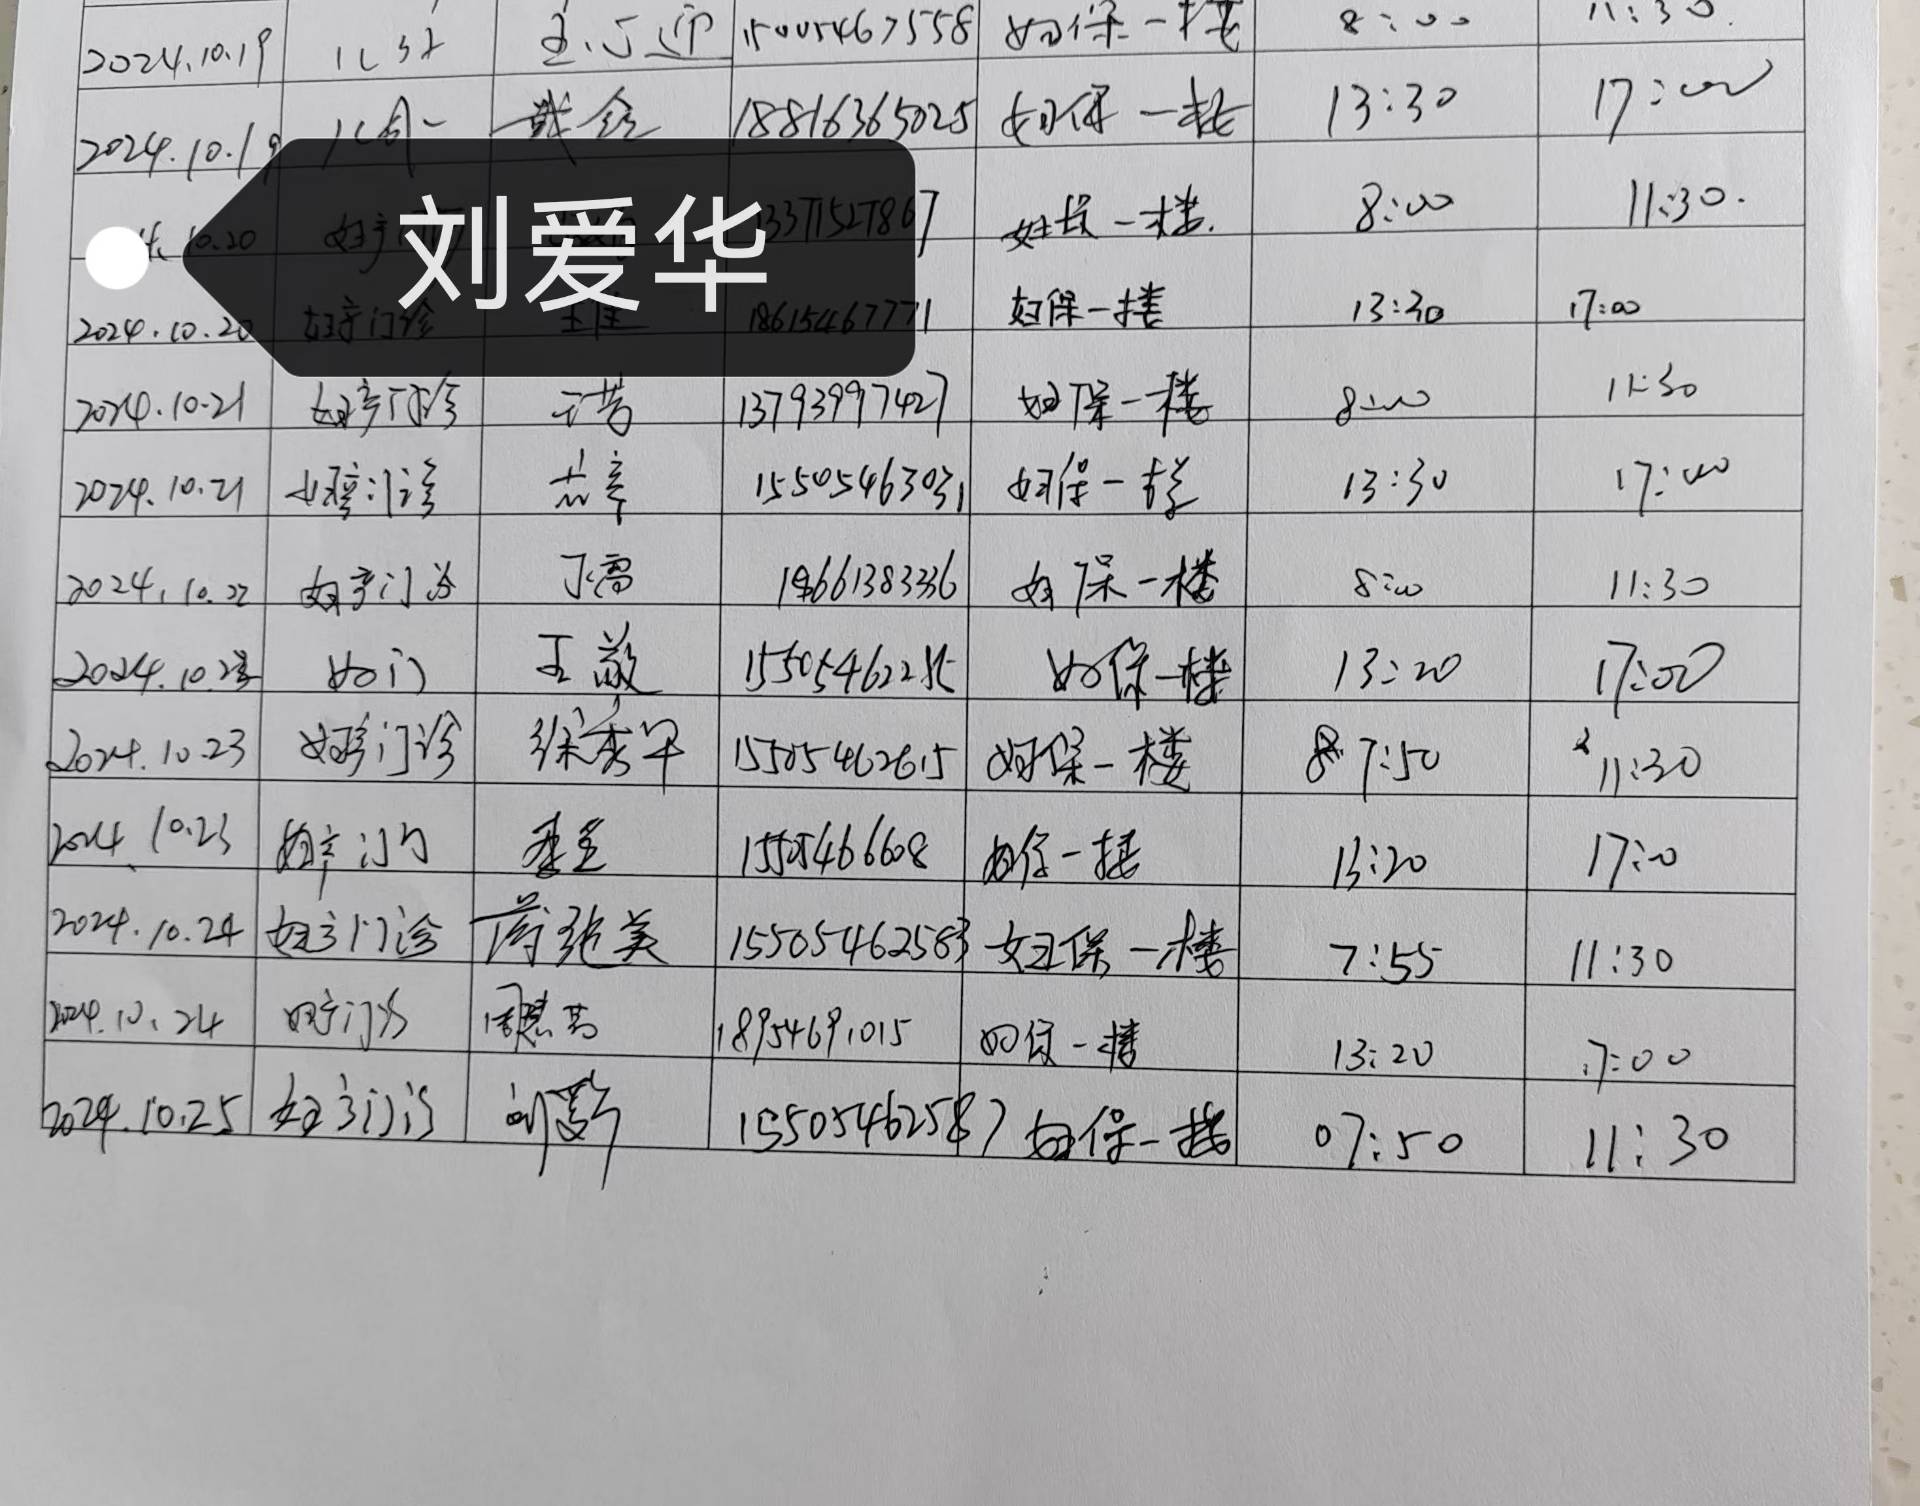 2024.10.19 15005467558 妇保一楼 8:00 11:30.
2024.10.19 18816365025 妇保一楼 13:30 17:00
刘爱华
10.20 13371527867 妇保一楼. 8:00 11:30.
2024.10.20 妇产门诊 王佳 18615467771 妇保一楼 13:30 17:00
2024.10.21 妇产门诊 13793997427 妇保一楼 8:00 11:30
2024.10.21 妇产门诊 15505463031 妇保一楼 13:30 17:00
2024.10.22 妇产门诊 妇保一楼 8:00 11:30
妇门 王敬 妇保一楼 13:20 17:00
2024.10.23 妇产门诊 徐秀平 15505462615 妇保一楼 7:50 11:30
2024.10.23 15505466608 妇保一楼 13:20 17:00
2024.10.24 妇产门诊 15505462583 妇保一楼 7:55 11:30
2024.10.24 妇产门诊 18954691015 妇保一楼 13:20 17:00
2024.10.25 妇产门诊 15505462587 妇保一楼 07:50 11:30